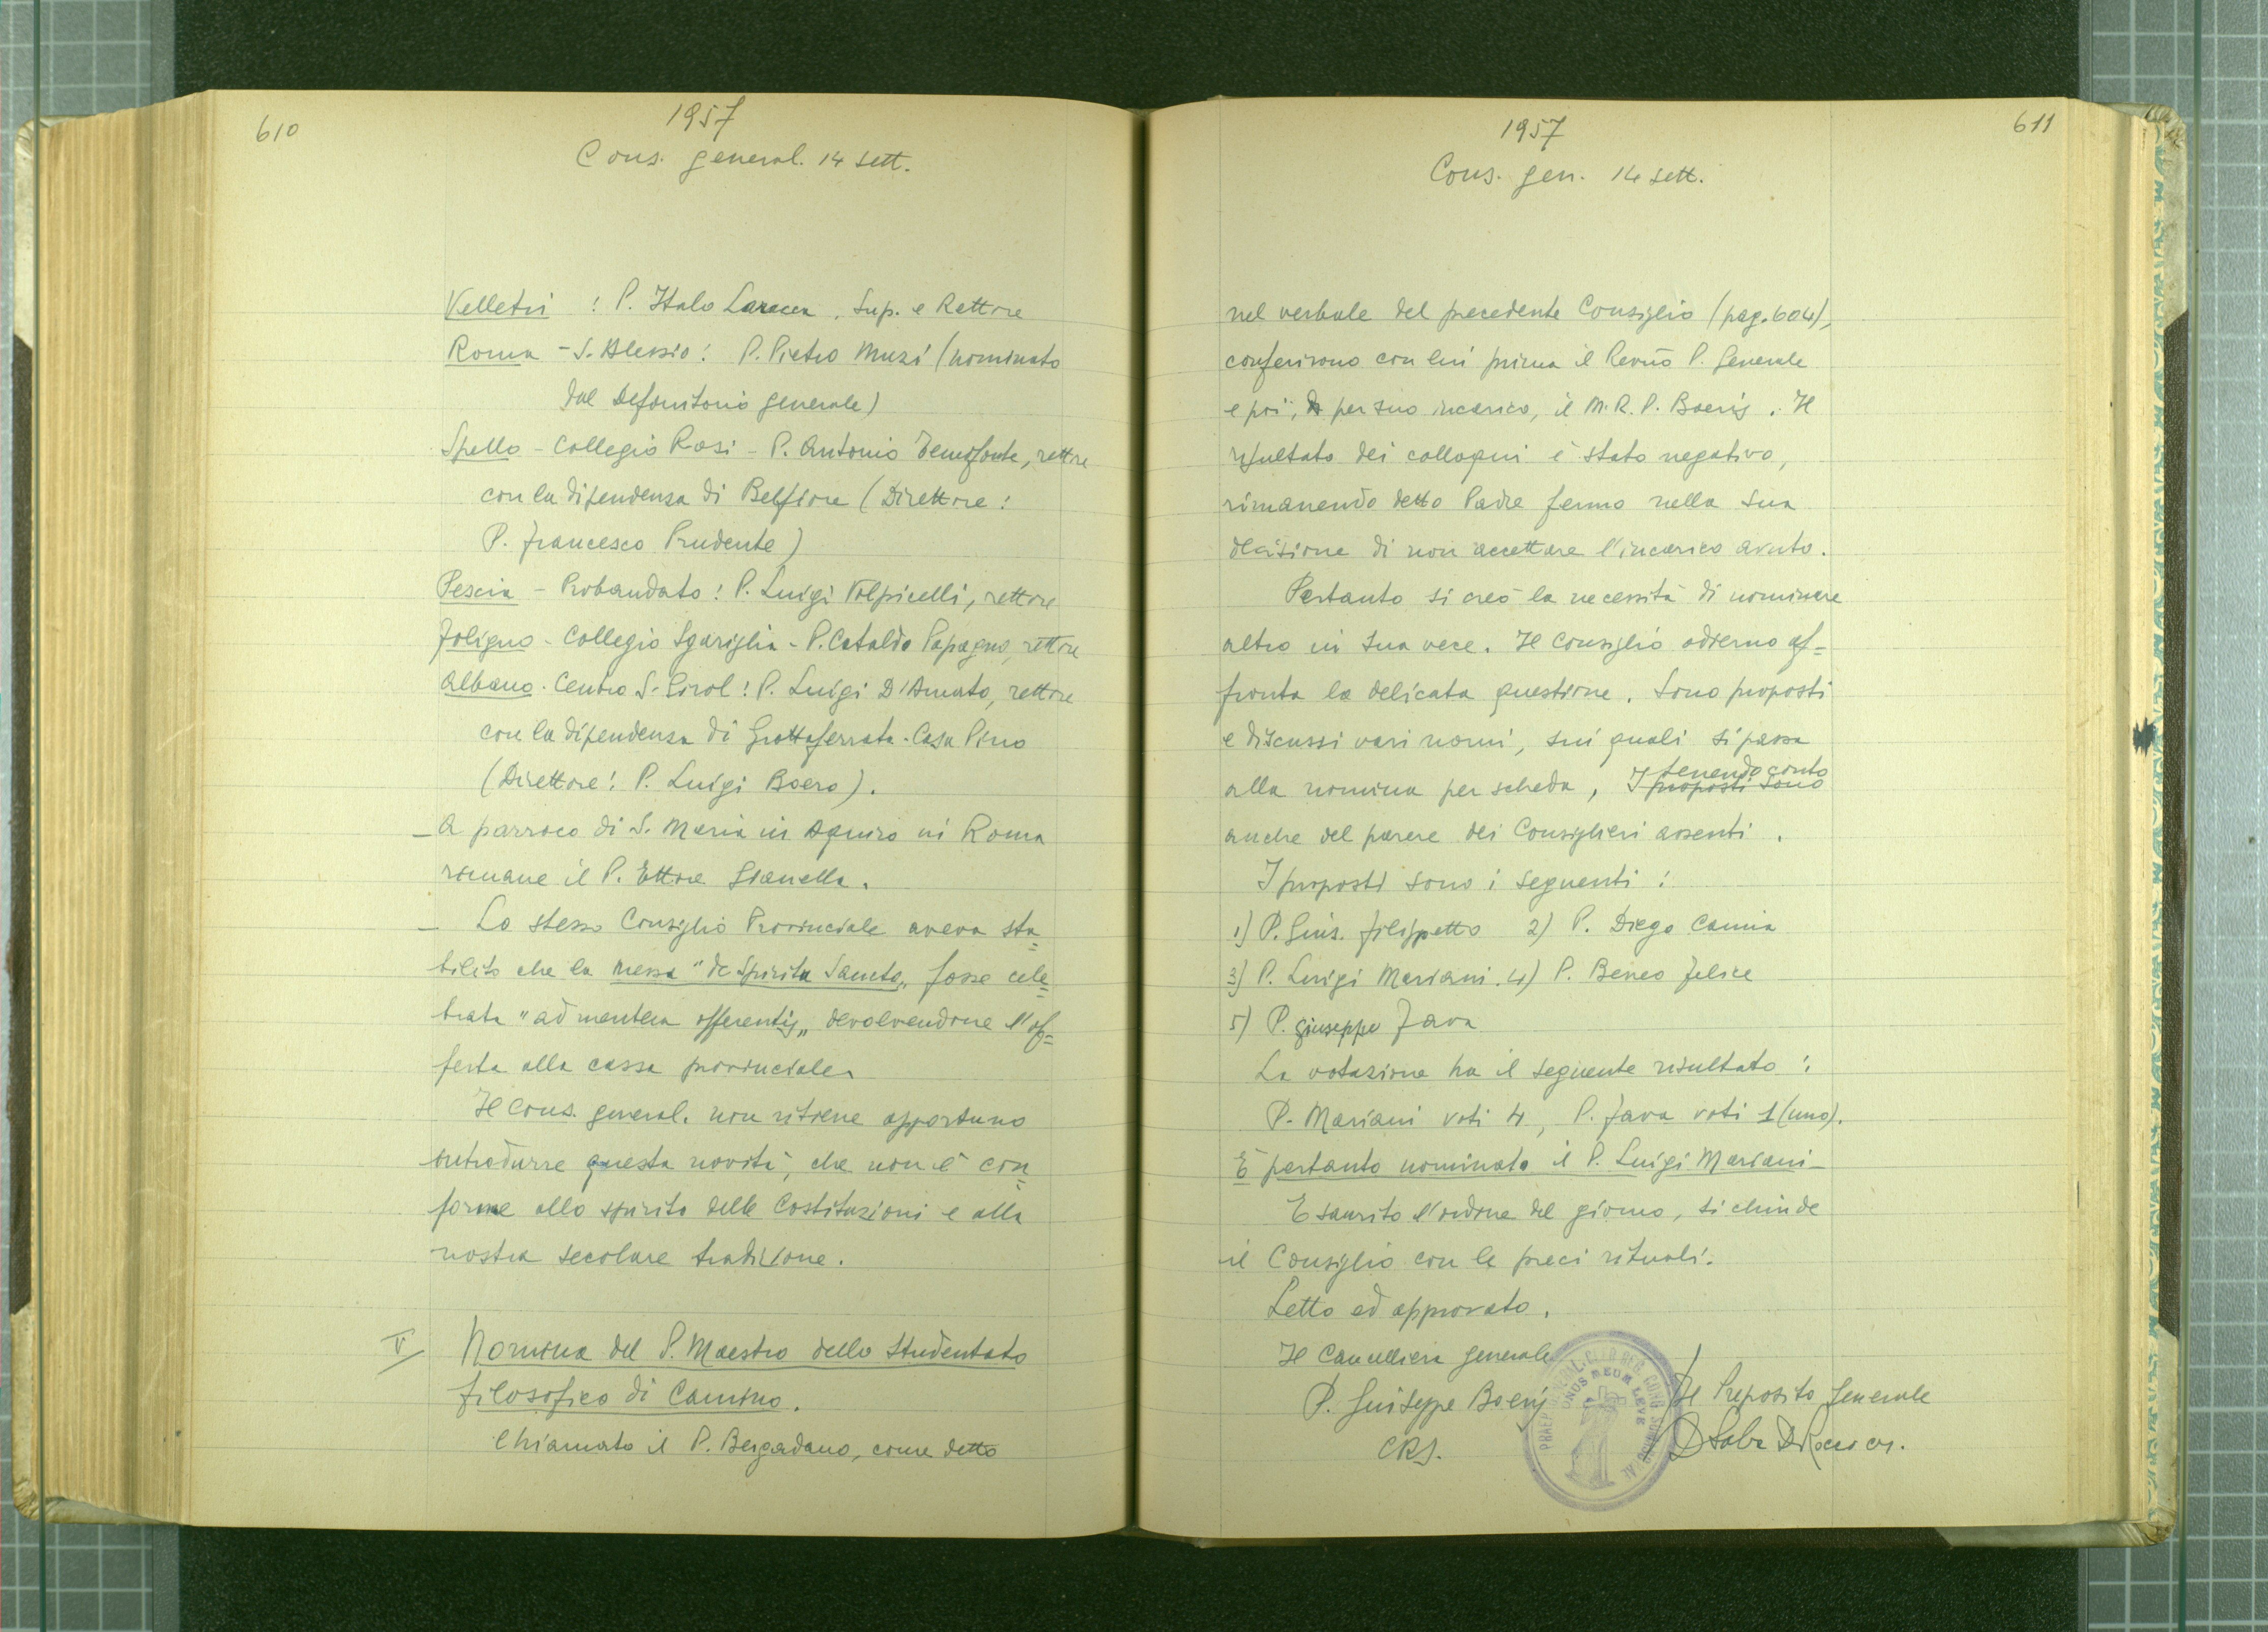 610
1957
Cons. general. 14 sett.
Velletri : P. Italo Laracca, Sup. e Rettore
Roma - S. Alessio : P. Pietro Muzi (nominato
dal Definitorio generale)
Spello - Collegio Rosi - P. Antonio Temofonte, rettore
con la dipendenza di Belfiore (Direttore :
P. Francesco Prudente)
Pescia - Probandato : P. Luigi Volpicelli, rettore
Foligno - Collegio Sgariglia - P. Cataldo Papagno, rettore
Albano - Centro S. Girol : P. Luigi D'Amato, rettore
con la dipendenza di Grottaferrata - Casa Pino
(Direttore : P. Luigi Boero).
- A parroco di S. Maria in Aquiro in Roma
rimane il P. Ettore Gianella.
- Lo stesso Consiglio Provinciale aveva sta=
bilito che la messa "de Spiritu Sancto" fosse cele=
brata "ad mentem offerentis" devolvendone l'of=
ferta alla cassa provinciale.
Il Cons. general. non ritiene opportuno
introdurre questa novità, che non è con=
forme allo spirito delle Costituzioni e alla
nostra secolare tradizione.
V/ Nomina del P. Maestro dello Studentato
filosofico di Camino.
Chiamato il P. Bergadano, come detto
611
1957
Cons. gen. 14 sett.
nel verbale del precedente Consiglio (pag. 604),
conferirono con lui prima il Revmo P. Generale
e poi, per suo incarico, il M. R. P. Boeris. Il
risultato dei colloqui è stato negativo,
rimanendo detto Padre fermo nella sua
decisione di non accettare l'incarico avuto.
Pertanto si creò la necessità di nominare
altro in sua vece. Il Consiglio odierno af=
fronta la delicata questione. Sono proposti
e discussi vari nomi, sui quali si passa
alla nomina per scheda, I proposti sono tenendo conto
anche del parere dei Consiglieri assenti.
I proposti sono i seguenti :
1) P. Gius. Filippetto 2) P. Diego Camia
3) P. Luigi Mariani. 4) P. Beneo Felice
5) P. Giuseppe Fava
La votazione ha il seguente risultato :
P. Mariani voti 4, P. Fava voti 1 (uno).
È pertanto nominato il P. Luigi Mariani -
Esaurito l'ordine del giorno, si chiude
il Consiglio con le preci rituali.
Letto ed approvato.
Il Cancelliere generale
P. Giuseppe Boeris
CRS.
Il Preposito Generale
ONUS MEUM LEVE